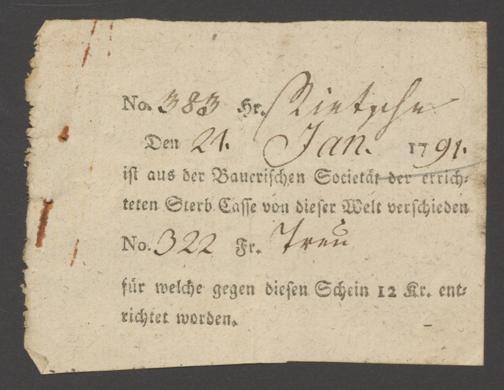 No. 383 Hr. Rietzsche
Den 21. Jan. 1791.
ist aus der Bauerischen Societät der errich-
teten Sterb Casse von dieser Welt verschieden
No. 322 Fr. Treu
für welche gegen diesen Schein 12 Kr. ent-
richtet worden.